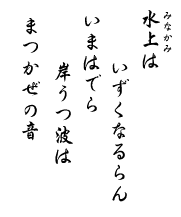 水上は
みなかみ
いずくなるらん
いまはでら
岸うつ波は
まつかぜの音